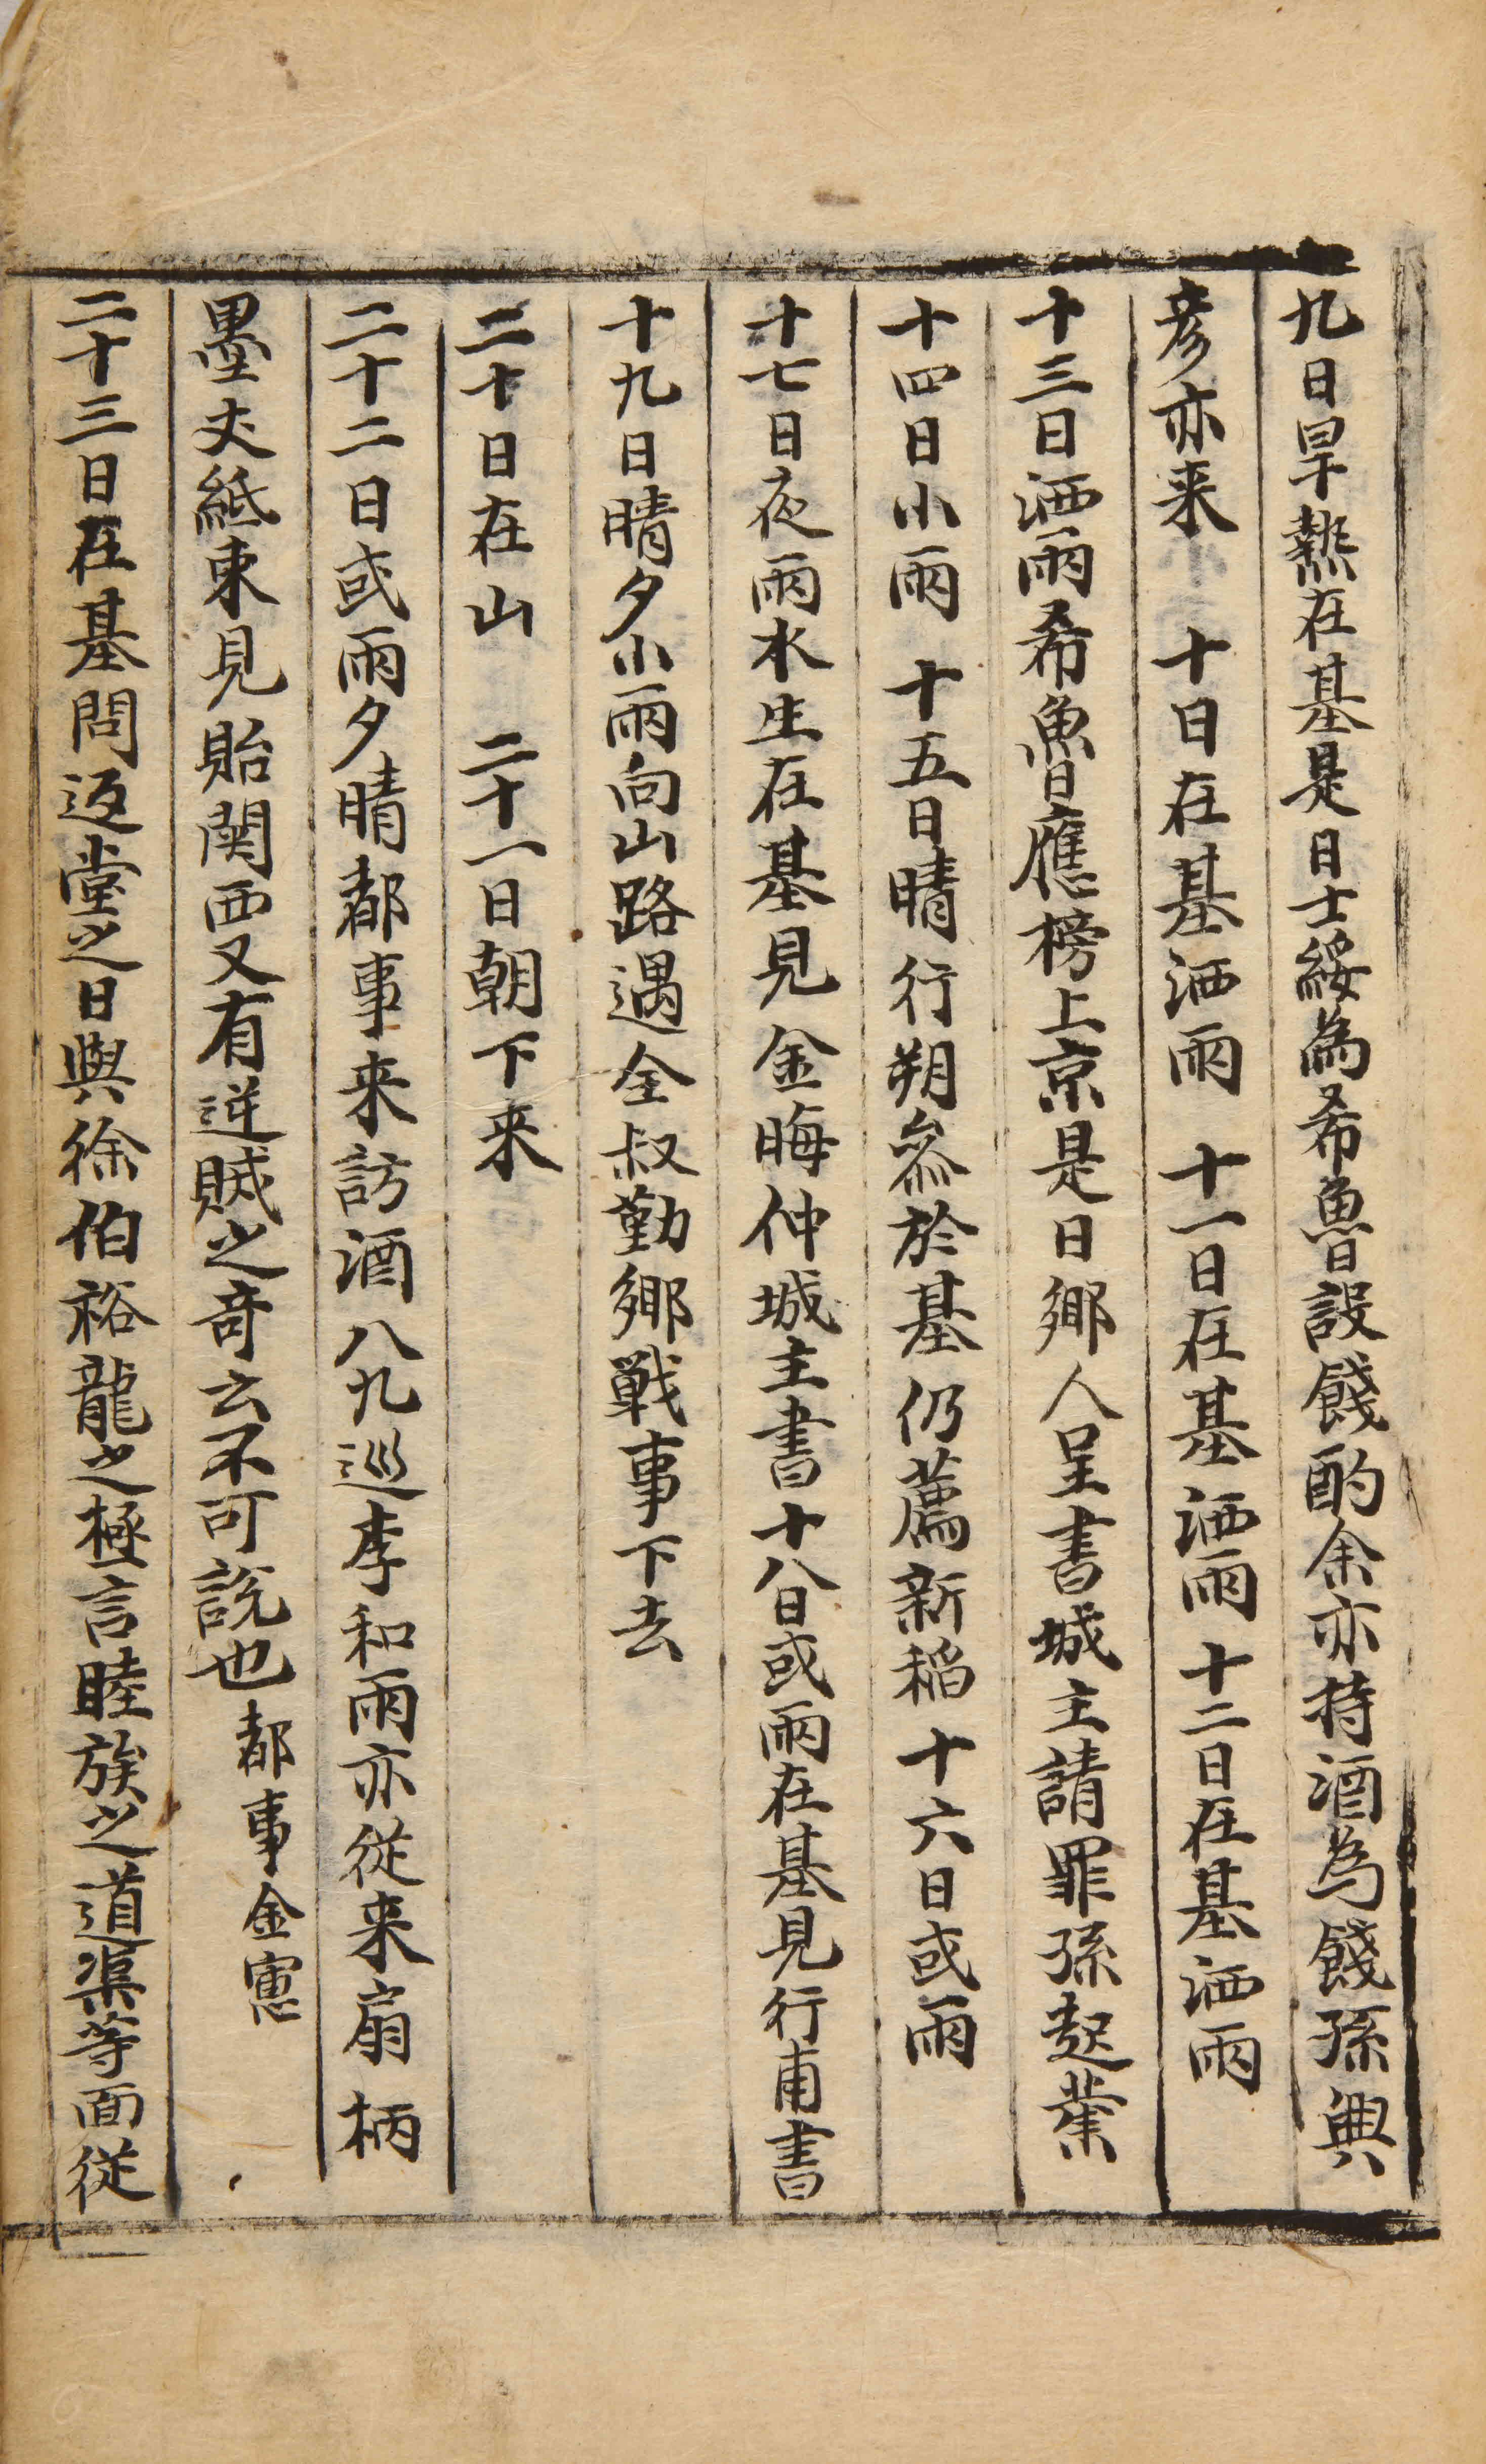 九日旱熱在基是日士綏為希魯設餞酌余亦持酒為餞孫興
彦亦来　十日在基洒雨　十一日在基洒雨　十二日在基洒雨
十三日洒雨希魯應榜上京是日鄉人呈書城主請罪孫起業
十四日小雨　十五日晴行朔叅於基仍薦新稻　十六日或雨
十七日夜雨水生在基見金晦仲城主書十八日或雨在基見行甫書
十九日晴夕小雨向山路遇全叔勤鄉戦事下去
二十日在山　二十一日朝下来
二十二日或雨夕晴都事来訪酒八九巡李和雨亦從来扇柄
墨丈紙束見貽関西又有逆賊之奇云不可說也都事金寭
二十三日在基問返堂之日與徐伯裕龍之極言睦族之道渠等面從